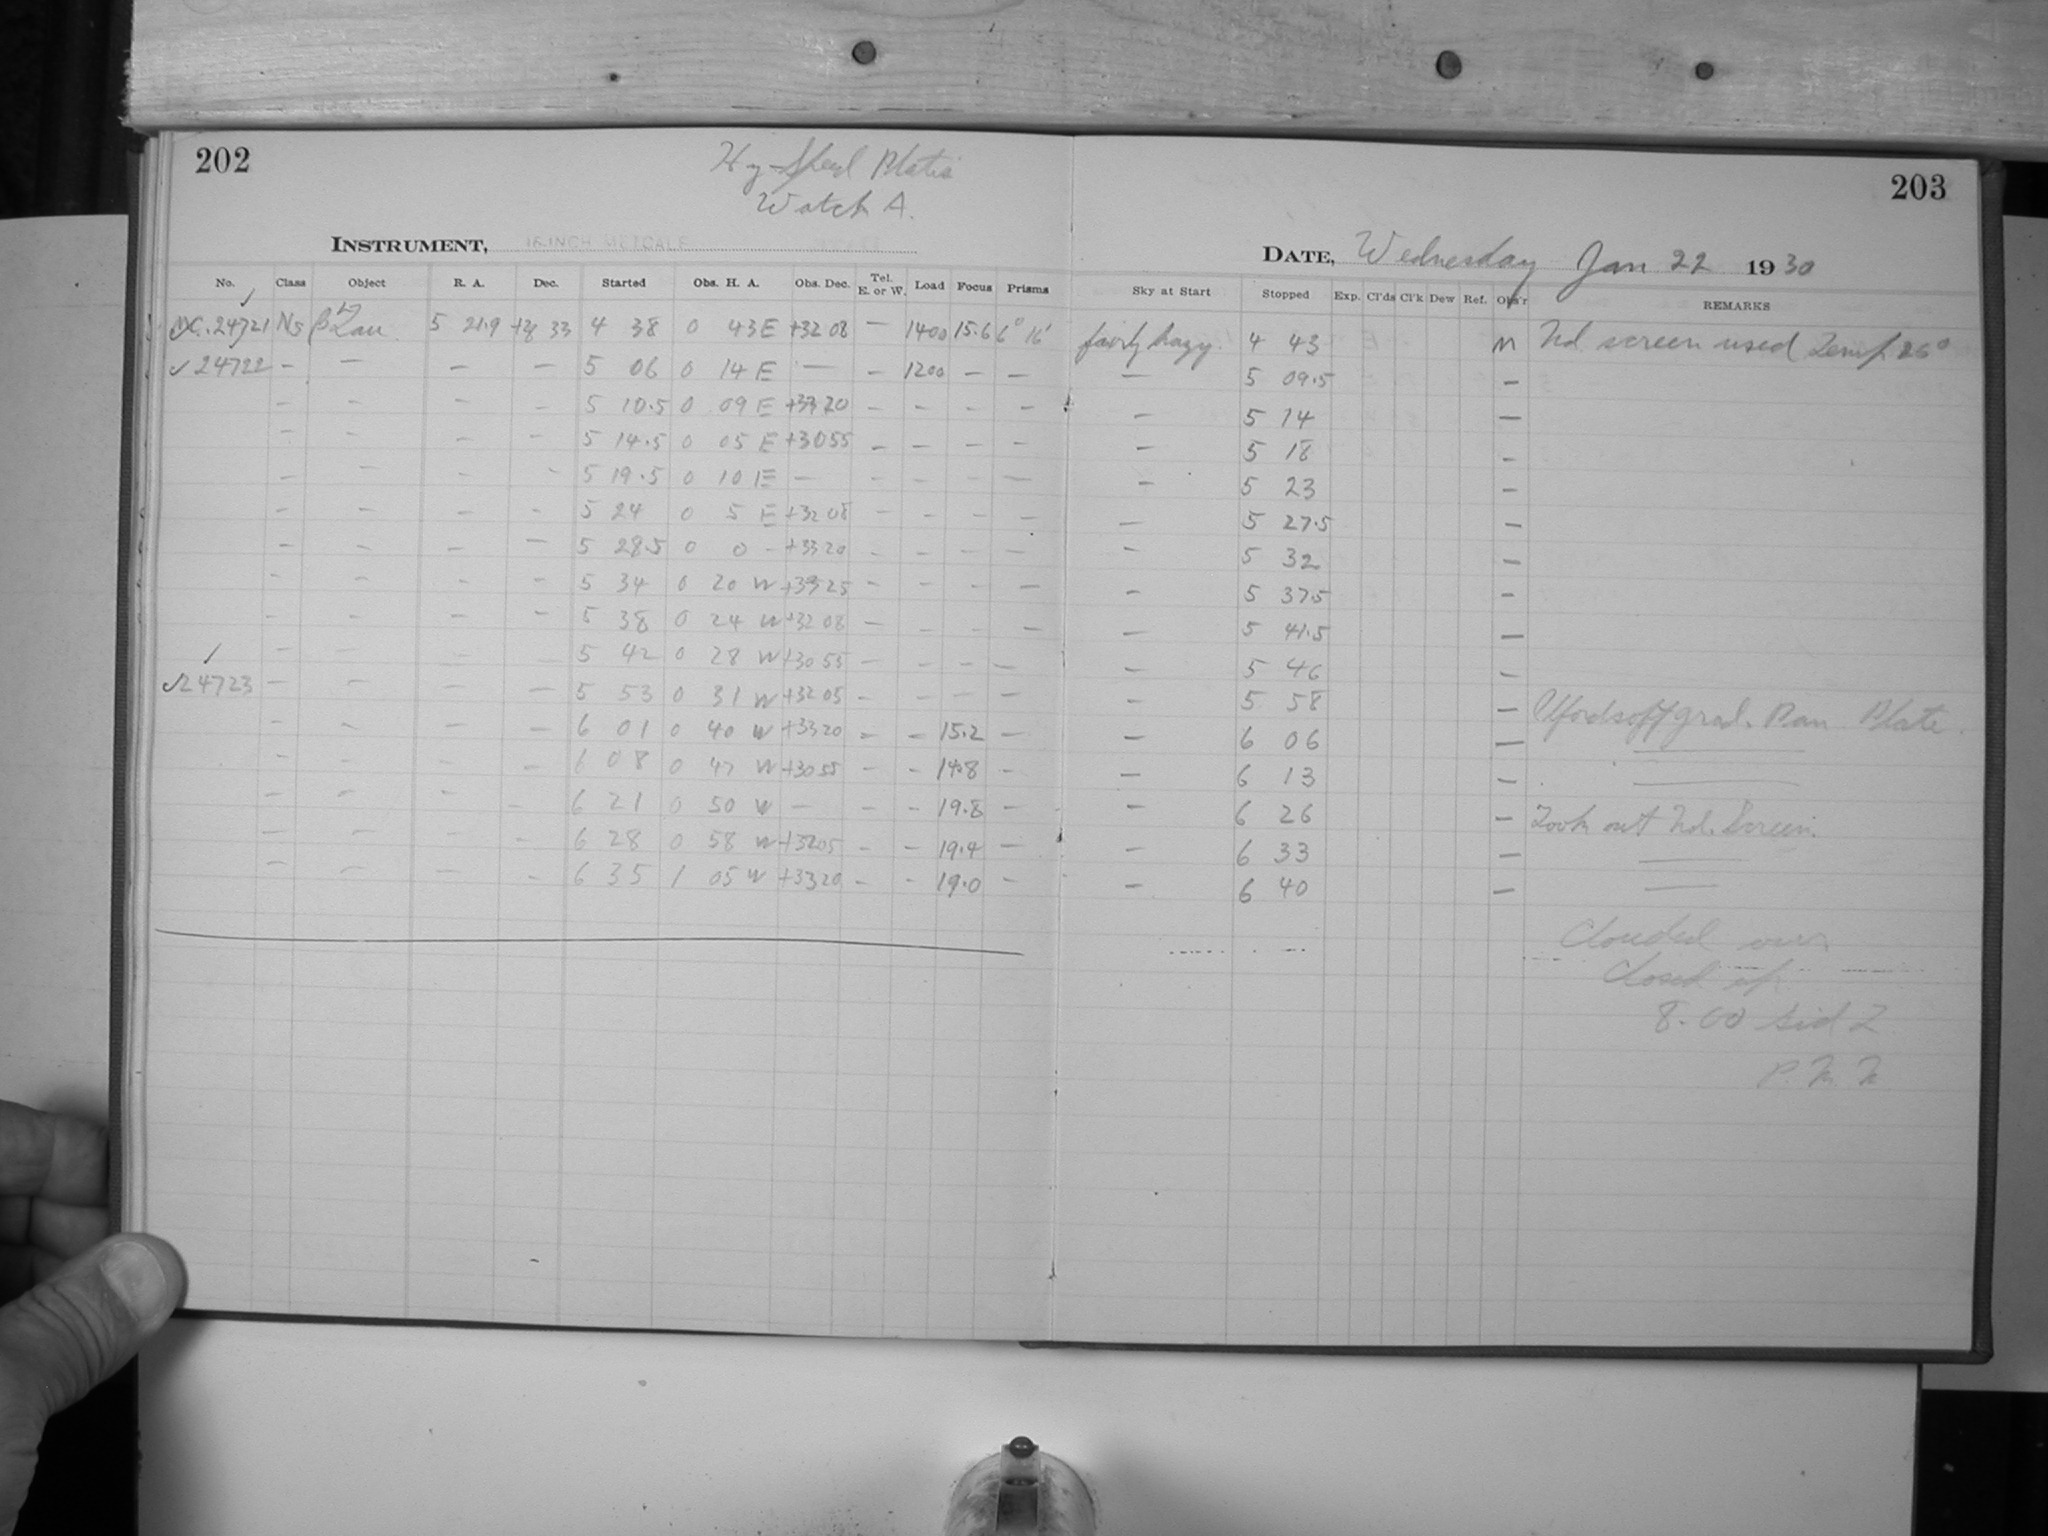 202
Hy-Speed Plates
Watch A.
203
INSTRUMENT, 16 INCH METCALF
DATE, Wednesday Jan 22 1930
No. Class Object R. A. Dec. Started Obs. H. A. Obs. Dec. Tel. E. or W. Load Focus Prisms Sky at Start Stopped Exp. Cl'ds Cl'k Dew Ref. Obs'r REMARKS
MC. 24721 N5 β Tau 5 21.9 +28 33 4 38 0 43 E +32 08 — 1400 15.6 6° 16' fairly hazy. 4 43 M Nd. screen used Temp 26°
24722 — — — — 5 06 0 14 E — — 1200 — — — 5 09.5 —
— — — — 5 10.5 0 09 E +33 20 — — — — — 5 14 —
— — — — 5 14.5 0 05 E +30 55 — — — — — 5 18 —
— — — — 5 19.5 0 10 E — — — — — — 5 23 —
— — — — 5 24 0 5 E +32 08 — — — — — 5 27.5 —
— — — — 5 28.5 0 0 - +33 20 — — — — — 5 32 —
— — — — 5 34 0 20 W +33 25 — — — — — 5 37.5 —
— — — — 5 38 0 24 W +32 08 — — — — — 5 41.5 —
— — — — 5 42 0 28 W +30 55 — — — — — 5 46 —
24723 — — — — 5 53 0 31 W +32 05 — — — — — 5 58 — grad. Pan Plate.
— — — — 6 01 0 40 W +33 20 — — 15.2 — — 6 06 — —
— — — — 6 08 0 47 W +30 55 — — 14.8 — — 6 13 — —
— — — — 6 21 0 50 W — — — 19.8 — — 6 26 — Took out Nd. Screen.
— — — — 6 28 0 58 W +32 05 — — 19.4 — — 6 33 — —
— — — — 6 35 1 05 W +33 20 — — 19.0 — — 6 40 — —
Clouded over
Closed up
8.00 Sid T